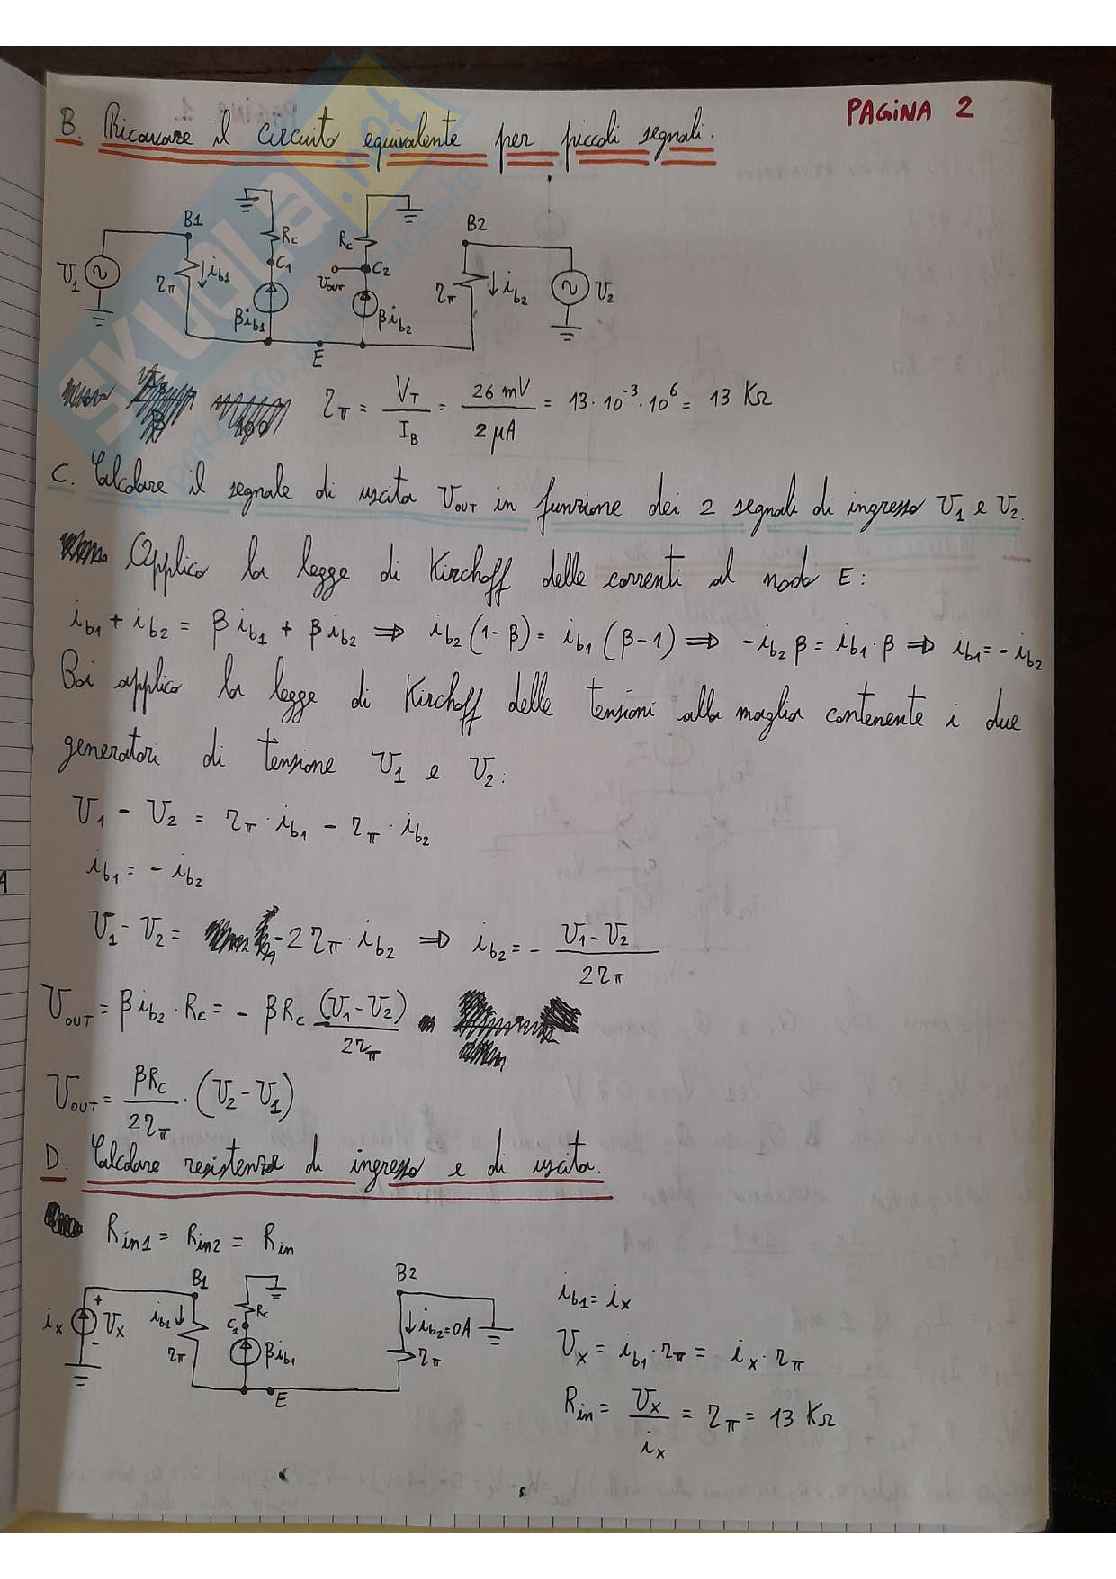 PAGINA 2
B. Ricavare il circuito equivalente per piccoli segnali.
B1 Rc Rc B2
C1 C2
V1 rπ ib1 vout rπ ib2 V2
βib1 βib2
E
rπ = VT / IB = 26 mV / 2 μA = 13·10^-3·10^6 = 13 KΩ
C. Calcolare il segnale di uscita VOUT in funzione dei 2 segnali di ingresso V1 e V2.
Applico la legge di Kirchoff delle correnti al nodo E:
ib1 + ib2 = β ib1 + β ib2 ⇒ ib2 (1-β) = ib1 (β-1) ⇒ -ib2 β = ib1·β ⇒ ib1 = -ib2
Poi applico la legge di Kirchoff delle tensioni alla maglia contenente i due
generatori di tensione V1 e V2:
V1 - V2 = rπ·ib1 - rπ·ib2
ib1 = - ib2
V1 - V2 = -2 rπ·ib2 ⇒ ib2 = - (V1-V2) / 2rπ
VOUT = β ib2·Rc = - βRc (V1-V2) / 2rπ
VOUT = βRc / 2rπ · (V2-V1)
D. Calcolare resistenza di ingresso e di uscita.
Rin1 = Rin2 = Rin
B1 B2
ix + Vx - ib1 rπ C1 Rc βib1 ib2=0A rπ
E
ib1 = ix
Vx = ib1·rπ = ix·rπ
Rin = Vx / ix = rπ = 13 KΩ